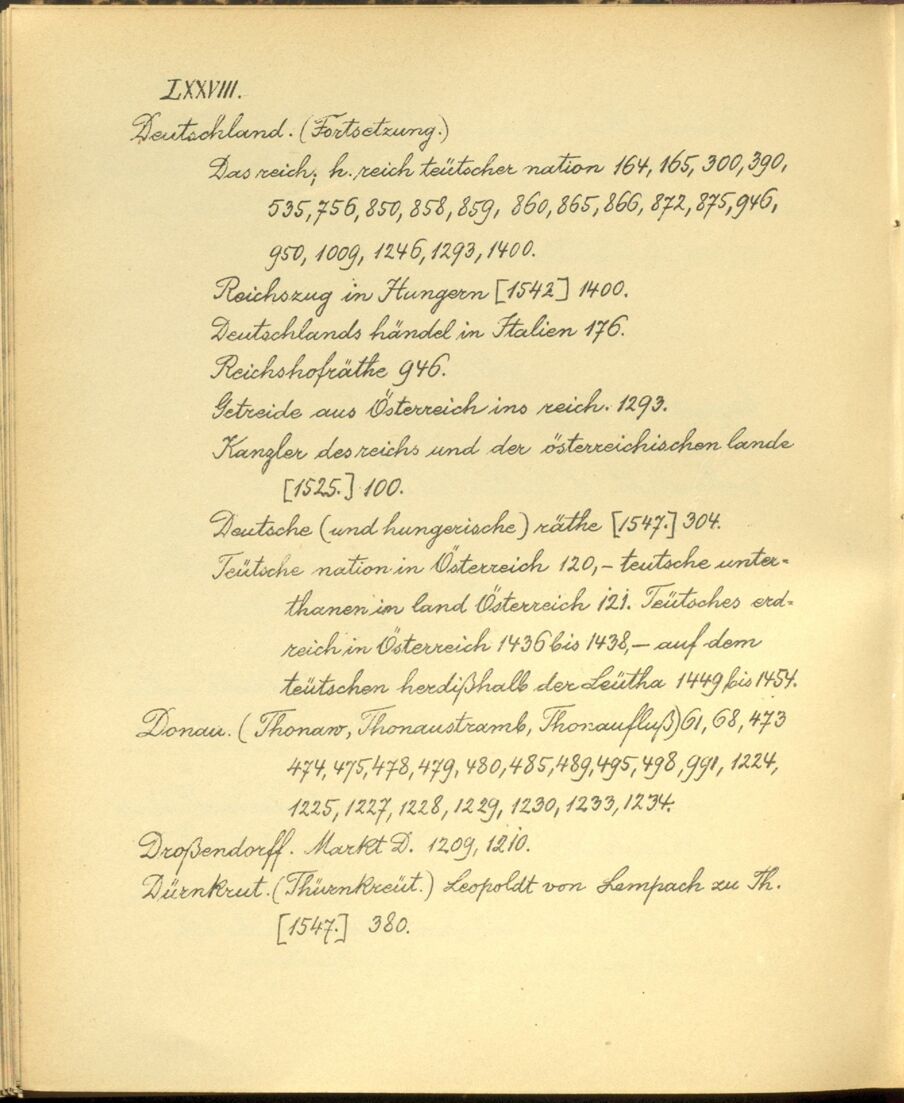 LXXVIII.
Deutschland. (Fortsetzung.)
Das reich; h. reich teütscher nation 164, 165, 300, 390,
535, 756, 850, 858, 859, 860, 865, 866, 872, 875, 946,
950, 1009, 1246, 1293, 1400.
Reichszug in Hungern [1542] 1400.
Deutschlands händel in Italien 176.
Reichshofräthe 946.
Getreide aus Österreich ins reich. 1293.
Kanzler des reichs und der österreichischen lande
[1525.] 100.
Deutsche (und hungerische) räthe [1547.] 304.
Teütsche nation in Österreich 120, – teutsche unter=
thanen in land Österreich 121. Teütsches erd=
reich in Österreich 1436 bis 1438, – auf dem
teütschen herdißhalb der Leütha 1449 bis 1454.
Donau. (Thonaw, Thonaustramb, Thonaufluß) 61, 68, 473
474, 475, 478, 479, 480, 485, 489, 495, 498, 991, 1224,
1225, 1227, 1228, 1229, 1230, 1233, 1234.
Droßendorff. Markt D. 1209, 1210.
Dürnkrut. (Thürnkreüt.) Leopoldt von Lempach zu Th.
[1547.] 380.